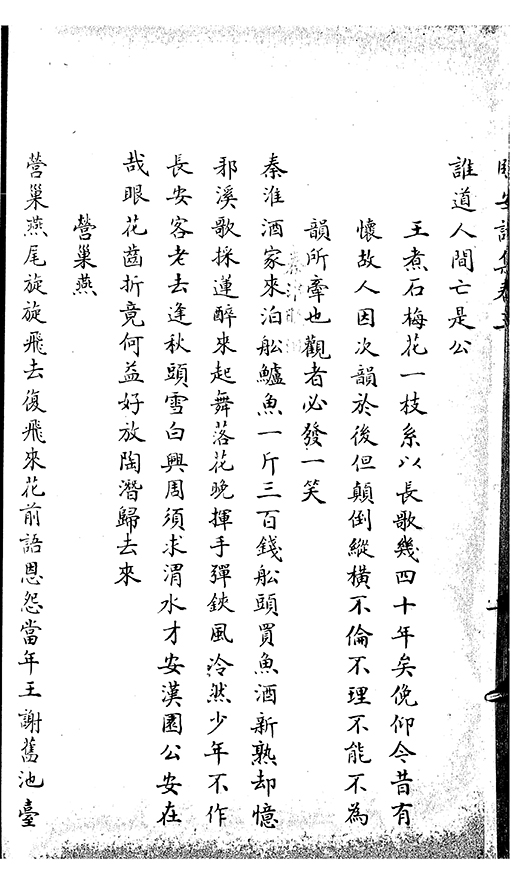 誰道人間亡是公
王煮石梅花一枝系以長歌幾四十年矣俛仰今昔有
懷故人因次韻於後但顛倒縱橫不倫不理不能不為
韻所牽也觀者必發一笑
秦淮酒家來泊舩鱸魚一斤三百錢舩頭買魚酒新熟却憶
邪溪歌採蓮醉來起舞落花晚揮手彈鋏風冷然少年不作
長安客老去逢秋頭雪白興周須求渭水才安漢園公安在
哉眼花齒折竟何益好放陶潛歸去來
營巢燕
營巢燕尾旋旋飛去復飛來花前語恩怨當年王謝舊池臺